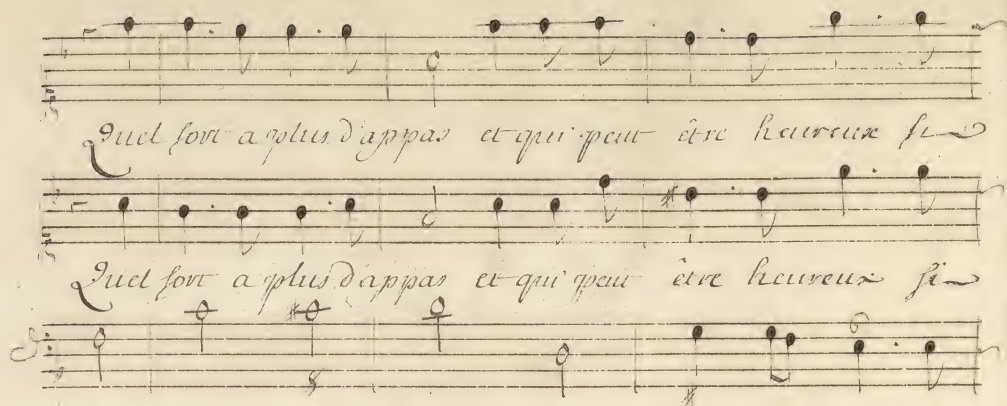 Quel sort a plus d'appas et qui peut être heureux si
Quel sort a plus d'appas et qui peut être heureux si